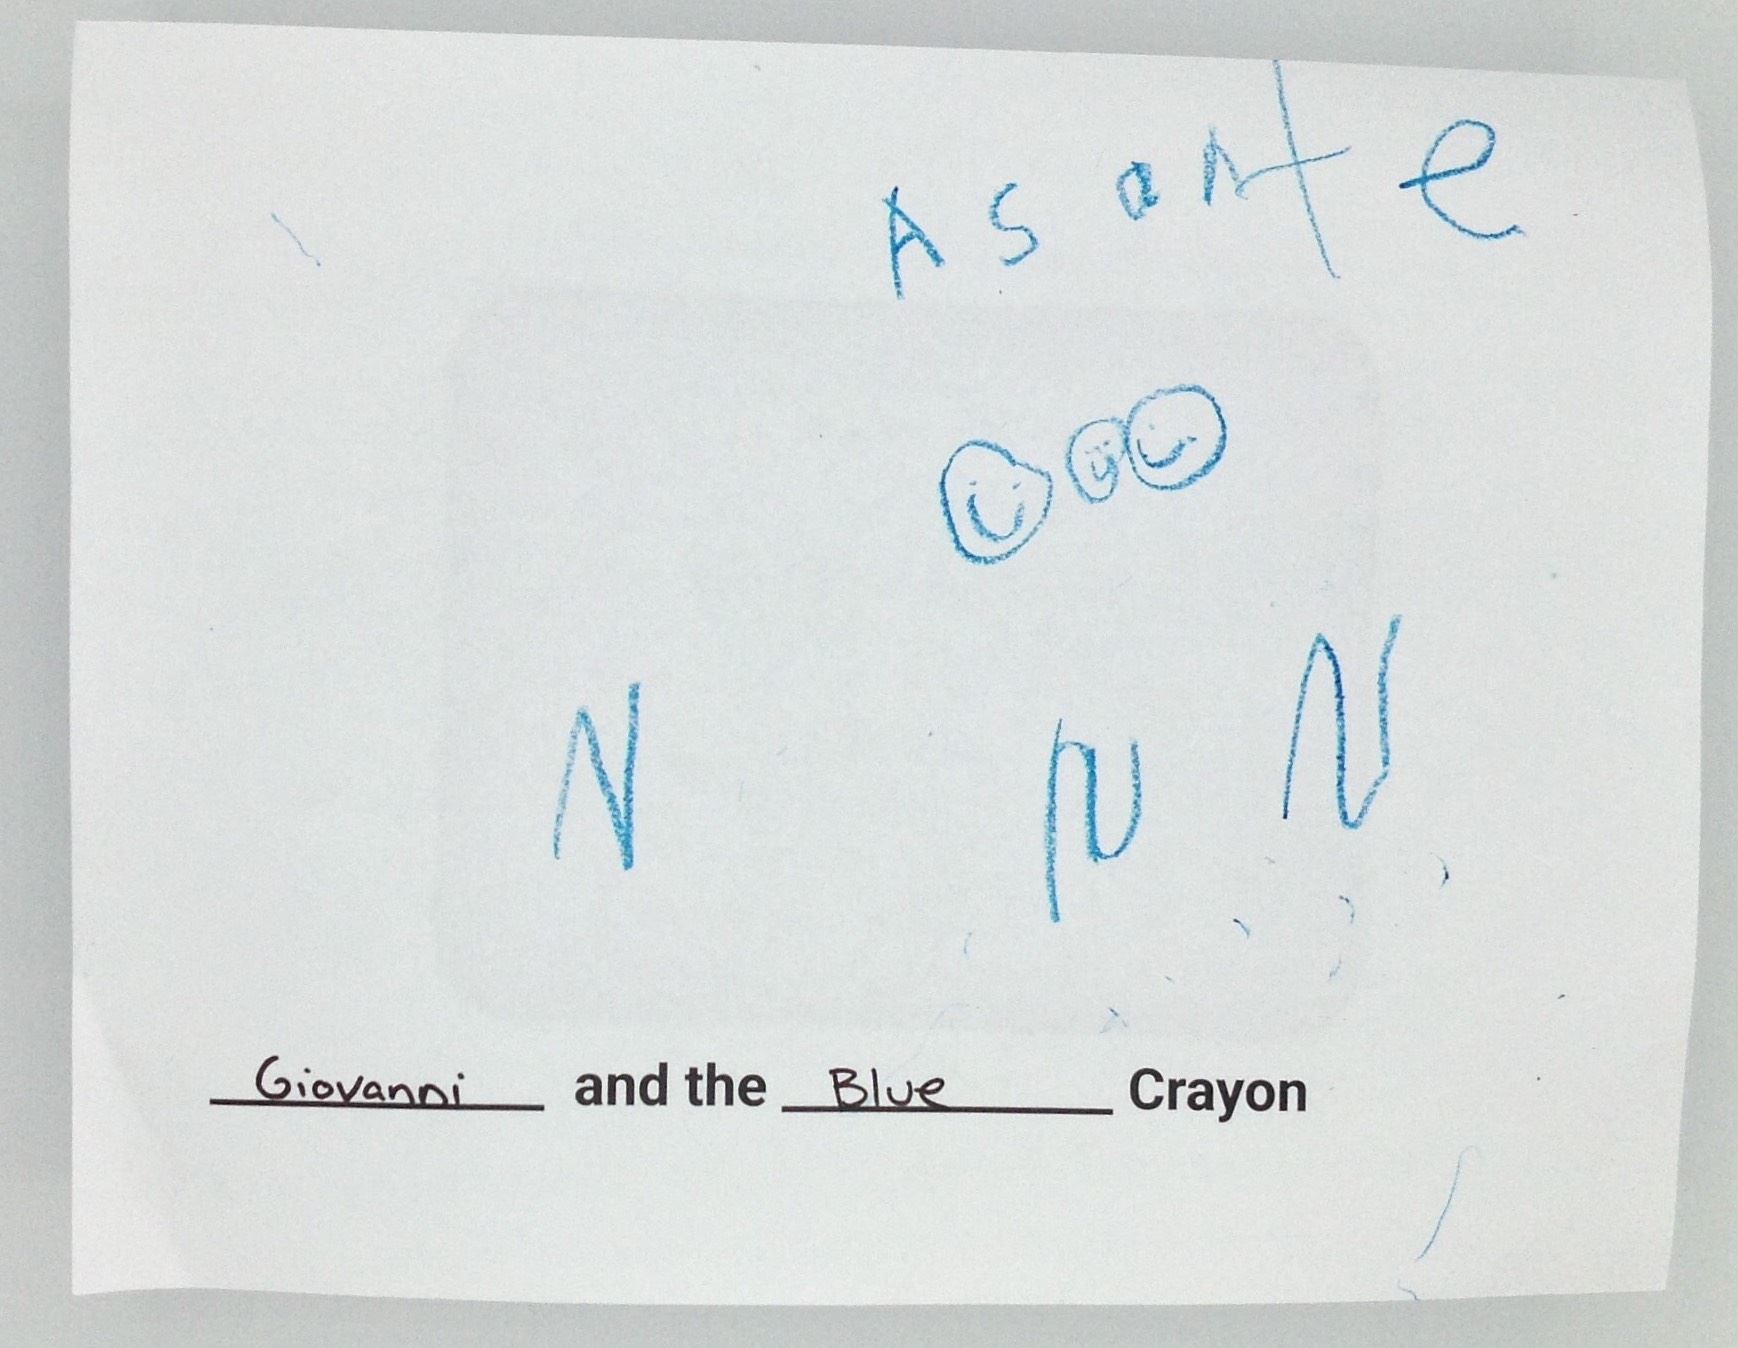 Asante
N N N
Giovanni and the Blue Crayon